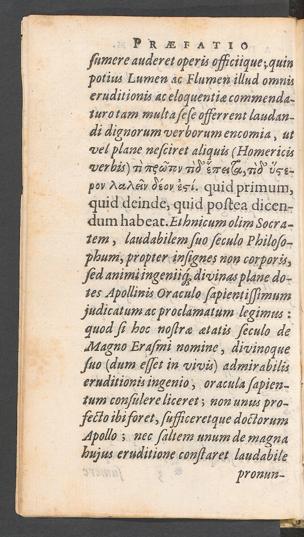 PRÆFATIO
sumere auderet operis officiique; quin
potius Lumen ac Flumen illud omnis
eruditionis ac eloquentiæ commenda-
turo tam multa sese offerrent laudan-
di dignorum verborum encomia, ut
vel plane nesciret aliquis (Homericis
verbis) τὶ πρῶτον, τὶ δ' ἔπειτα, τὶ δ' ὕστε-
ρον λαλεῖν δέον ἐστί. quid primum,
quid deinde, quid postea dicen-
dum habeat. Ethnicum olim Socra-
tem, laudabilem suo seculo Philoso-
phum, propter insignes non corporis,
sed animi ingeniiq́, divinas plane do-
tes Apollinis Oraculo sapientissimum
judicatum ac proclamatum legimus:
quod si hoc nostræ ætatis seculo de
Magno Erasmi nomine, divinoque
suo (dum esset in vivis) admirabilis
eruditionis ingenio, oracula sapien-
tum consulere liceret; non unus pro-
fecto ibi foret, sufficeretque doctorum
Apollo; nec saltem unum de magna
hujus eruditione constaret laudabile
pronun-